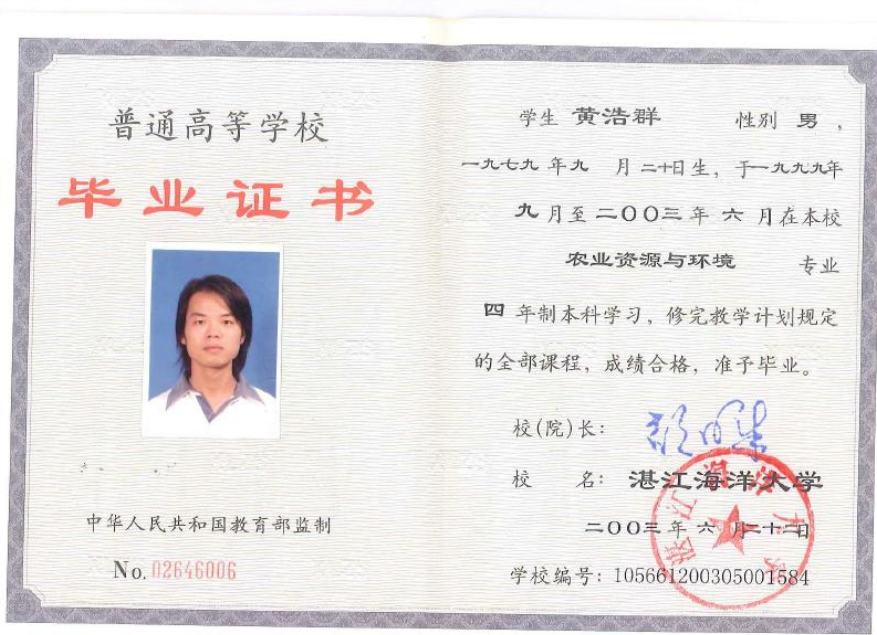 普通高等学校
毕业证书
中华人民共和国教育部监制
No. 02646006
学生 黄浩群 性别 男,
一九七九年九 月二十日生,于一九九九年
九月至二〇〇三年 六 月在本校
农业资源与环境 专业
四 年制本科学习,修完教学计划规定
的全部课程,成绩合格,准予毕业。
校(院)长:
校 名:湛江海洋大学
二〇〇三年六月二十二日
学校编号:105661200305001584
湛江海洋大学